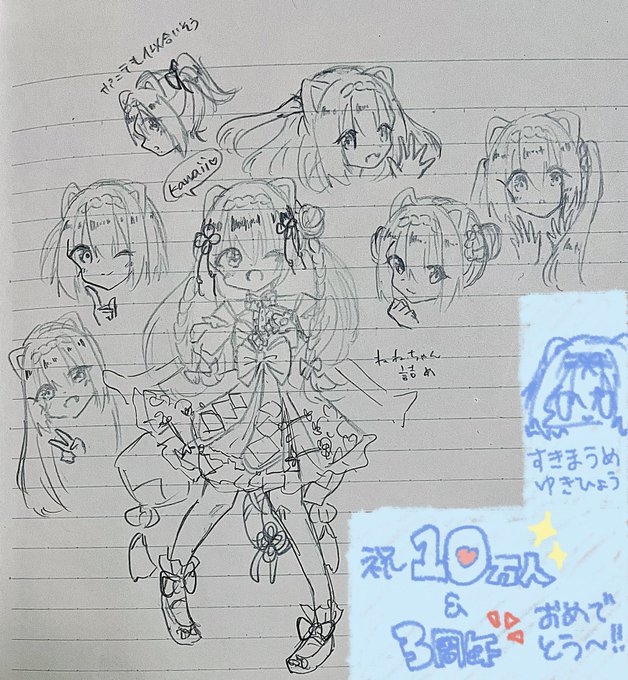 ポニテも似合いそう
kawaii♡
ねねちゃん
詰め
すきまうめ
ゆきひょう
祝10万人
&
3周年
おめで
とう〜!!